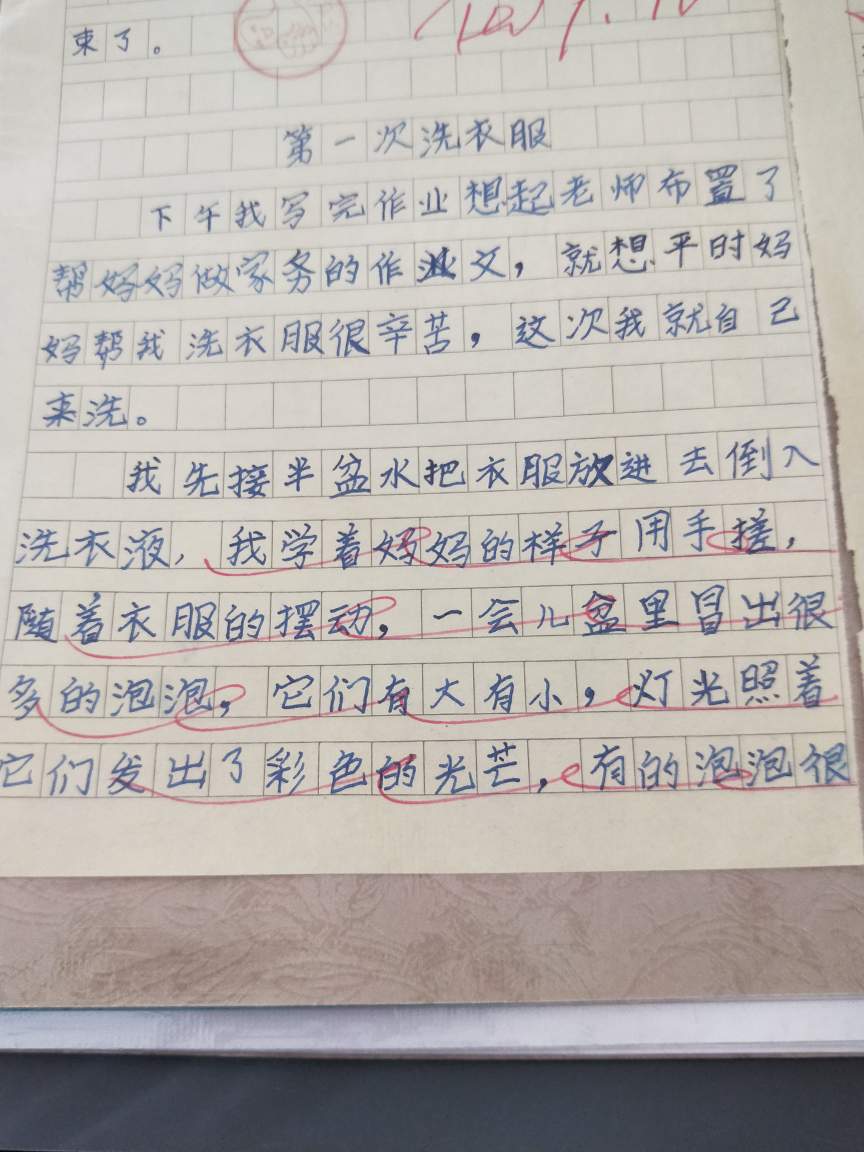 束了。
第一次洗衣服
下午我写完作业想起老师布置了
帮妈妈做家务的作文，就想平时妈
妈帮我洗衣服很辛苦，这次我就自己
来洗。
我先接半盆水把衣服放进去倒入
洗衣液，我学着妈妈的样子用手搓，
随着衣服的摆动，一会儿盆里冒出很
多的泡泡，它们有大有小，灯光照着
它们发出了彩色的光芒，有的泡泡很